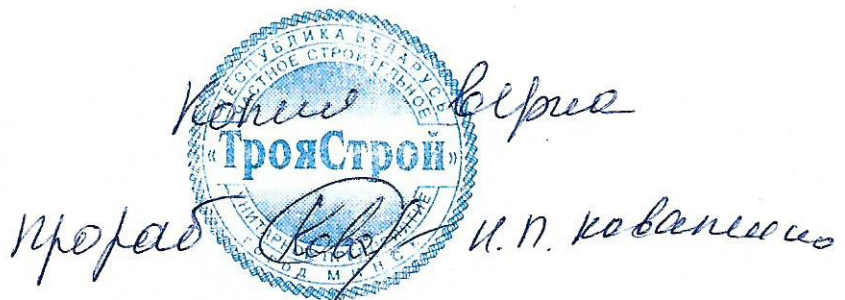 РЕСПУБЛИКА БЕЛАРУСЬ
ЧАСТНОЕ СТРОИТЕЛЬНОЕ
Копия верна
«ТрояСтрой»
УНИТАРНОЕ ПРЕДПРИЯТИЕ
ГОРОД МИНСК
прораб
И.П. Коваленко